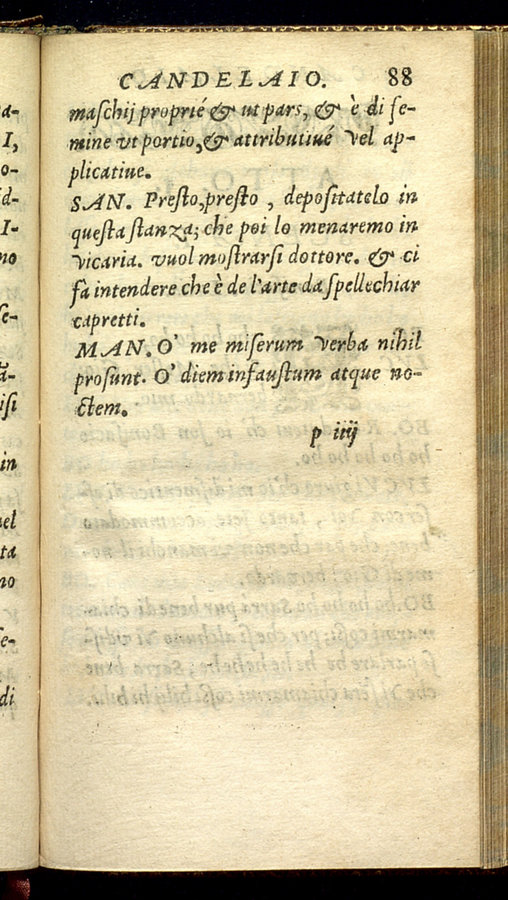 CANDELAIO. 88
maſchij proprié & ut pars, & è di fe-
mine vt portio, & attributiué vel ap-
plicatiue.
SAN. Preſto, preſto , depoſitatelo in
queſta ſtanza; che poi lo menaremo in
vicaria. vuol moſtrarſi dottore. & ci
fà intendere che è de l'arte da ſpellechiar
capretti.
MAN. O' me miſerum verba nihil
proſunt. O' diem infauſtum atque no-
ctem.
p iiij